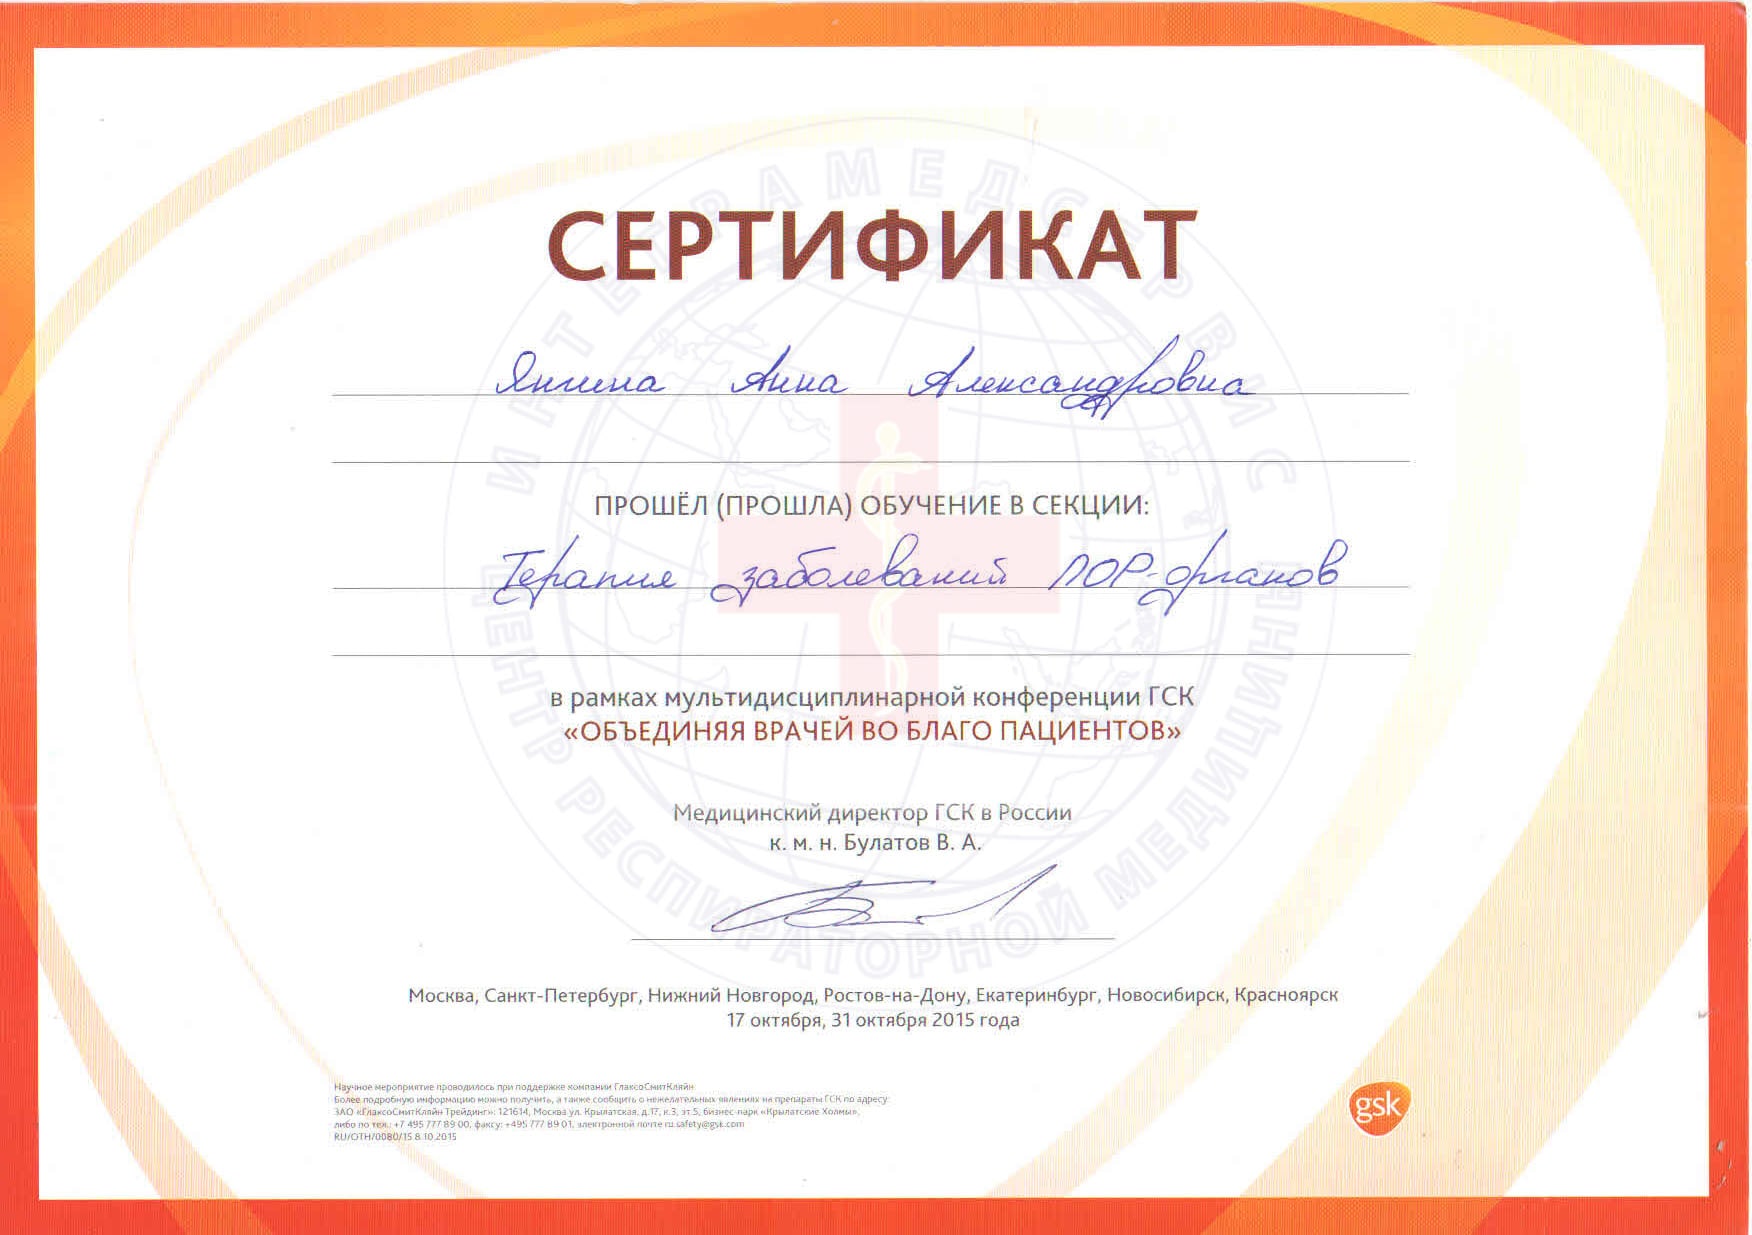 ИНТЕГРАМЕДСЕРВИС
СЕРТИФИКАТ
Анна Александровна
ПРОШЁЛ (ПРОШЛА) ОБУЧЕНИЕ В СЕКЦИИ:
Терапия заболеваний ЛОР-органов
в рамках мультидисциплинарной конференции ГСК
«ОБЪЕДИНЯЯ ВРАЧЕЙ ВО БЛАГО ПАЦИЕНТОВ»
Медицинский директор ГСК в России
к. м. н. Булатов В. А.
ЦЕНТР РЕСПИРАТОРНОЙ МЕДИЦИНЫ
Москва, Санкт-Петербург, Нижний Новгород, Ростов-на-Дону, Екатеринбург, Новосибирск, Красноярск
17 октября, 31 октября 2015 года
Научное мероприятие проводилось при поддержке компании ГлаксоСмитКляйн
Более подробную информацию можно получить, а также сообщить о нежелательных явлениях на препараты ГСК по адресу:
ЗАО «ГлаксоСмитКляйн Трейдинг»: 121614, Москва ул. Крылатская, д.17, к.3, эт.5, бизнес-парк «Крылатские Холмы»,
либо по тел.: +7 495 777 89 00, факсу: +495 777 89 01, электронной почте ru.safety@gsk.com
RU/OTH/0080/15 8.10.2015
gsk